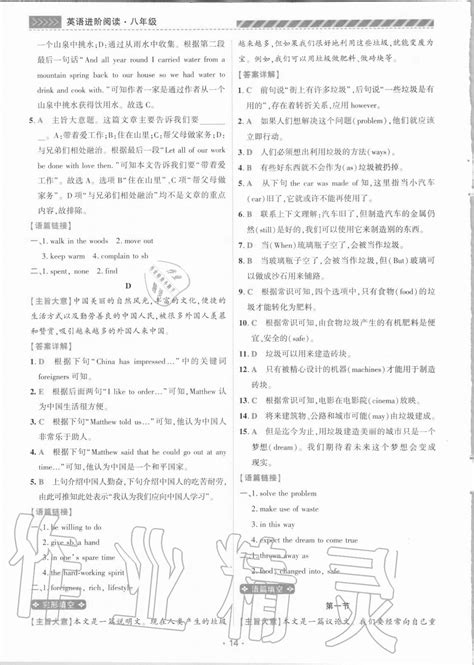 英语进阶阅读·八年级
一个山泉中挑水；D：通过从雨水中收集。根据第二段
最后一句话“And all year round I carried water from a
mountain spring back to our house so we had water to
drink and cook with.”可知一家是通过作者从一个
山泉中挑水获得水的。故选C
5. A 主旨大意题。这篇文章主要告诉我们要
。A：带着爱工作；B：住在山里；C：帮父母做家务；D：
与兄弟们相处融洽。根据最后一句“Let all of our work
be done with love then.”可知本文告诉我们要“带着
爱工作”。故选A。选项B“住在山里”、C“帮父母做
家务”、D“与兄弟们相处融洽”均不是文章的重点
内容，故排除。
【语篇链接】
一、1. walk in the woods 2. move out
3. keep warm 4. complain to sb
二、1. spent, one 2. find
D
【主旨大意】中国美丽的自然风景，丰富的文化，使捷的
生活以及勤劳善良的中国人民，被很多外国人羡慕
和欣赏，吸引着越来越多的外国人来中国。
【答案详解】
1. D 根据下句“China has impressed…”中的关键词
foreigners可知。
2. E 根据后面两句“I like to order…”可知，Matthew认
为中国生活很方便。
3. A 根据上句可知，他在中国时，Matthew认为中国人
非常乐于助人。
4. B 根据“Matthew said that he could go out at any
time…”可知。
5. C 上句介绍中国人勤奋，下句介绍中国人的吃苦耐劳，
由此可推知此处为Matthew对中国人的评价。
【语篇链接】
一、1. be willing to do
2. give sb a hand
3. in one's spare time
4. the hard-working spirit
二、1. foreigners, rich, lifestyle
完形填空
【主旨大意】本文是一篇说明文。现在人要产生的垃圾
越来越多，但我们可以利用这些垃圾，使它们变废为宝。
例如，我们可以用垃圾发电、做砖块等。
【答案详解】
1. C 前句说“街上有许多垃圾”，后句说“一些垃圾是有用
的”，存在着转折关系，应用however。
2. A 如果人们想要解决这个问题（problem），他们就应该
立即行动。
3. D 人们必须想出利用垃圾的方法（ways）。
4. B 有些好东西就不会作为（as）垃圾被扔掉。
5. A 从下句the car was made of知，这里指当小汽车
（car）旧了就会被扔掉。
6. B 联系上文理解：汽车虽然旧了，但制造汽车的金属仍
然（still）很有用，可以用来它制造别的东西。
7. A 当（When）玻璃瓶子空了，也会被人们扔掉。
8. D 当玻璃瓶子空了，会被人们扔掉，但（But）玻璃可以
做成沙石用来铺路。
9. C 根据常识可知，四个选项中，只有食物（food）垃圾
才能转化为肥料。
10. C 根据常识可知，由食物垃圾产生的有机肥料是便
宜的。
11. B 垃圾可以用来建造砖块。
12. A 只有被精心设计的机器（machines）才能用于建造。
13. B 根据常识可知，电影在电影院（cinema）中放映。
14. D 将来建筑物、公路和城市可能（may）由垃圾建成。
15. A 但是迄今为止，用垃圾建造美丽的城市只是一个
梦想（dream），我们期待着未来这个梦想能变成
现实。
【语篇链接】
一、1. solve the problem
2. make use of
3. in waste
4. expect the dream to come true
二、1. thrown away as
2. food, changed into
语篇填空
第一节
【主旨大意】本文是一篇议论文。我们要乐观自信地
· 14 ·
作业精灵